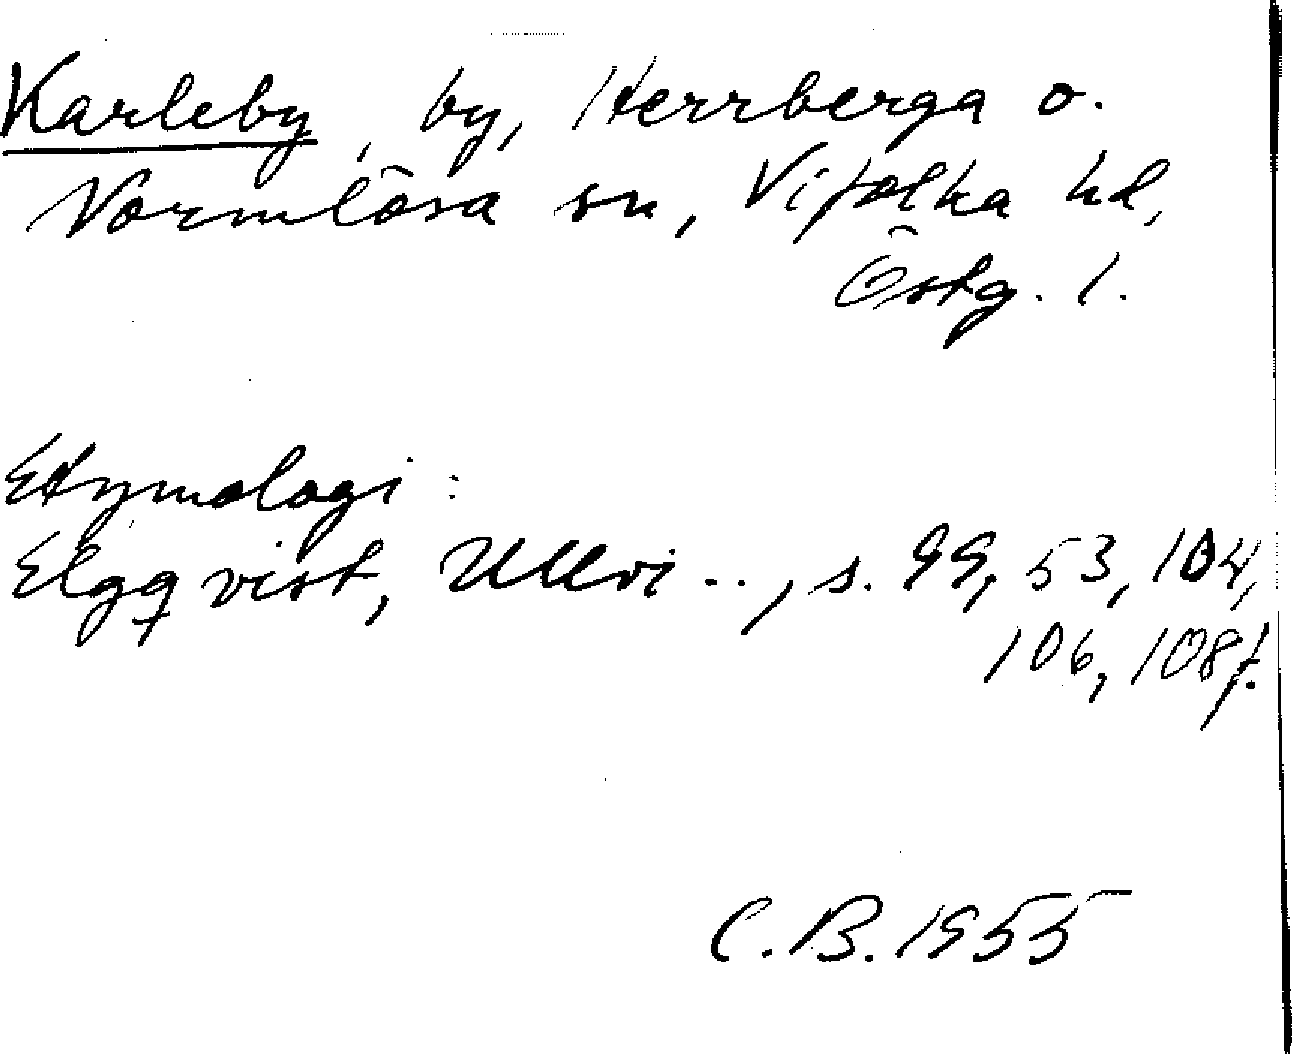 Karleby, by, Herrberga o.
Normlösa sn, Vifolka hd,
Östg. l.
Etymologi:
Elgqvist, Ullvi .., s. 99, 53, 104,
106, 108f.
C.B. 1955